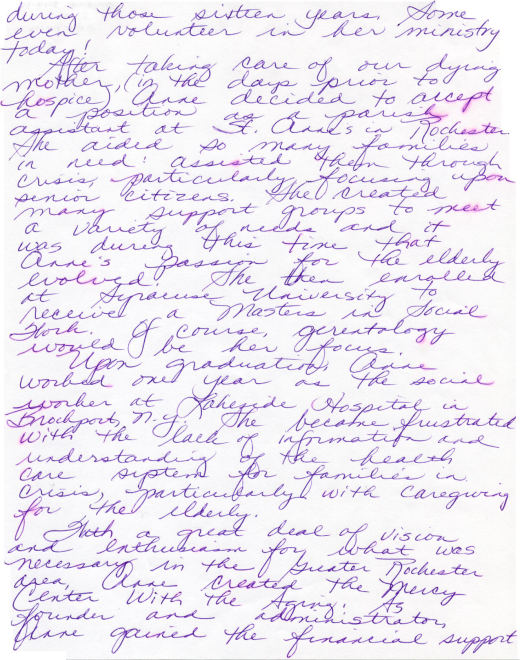 during those sixteen years. Some
even volunteer in her ministry
today!
After taking care of our dying
mother, in the days prior to
hospice, Anne decided to accept
a position as a parish
assistant at St. Anne's in Rochester.
She aided so many families
in need: assisted them through
crisis, particularly focusing upon
senior citizens. She created
many support groups to meet
a variety of needs and it
was during this time that
Anne's passion for the elderly
evolved. She then enrolled
at Syracuse University to
receive a Masters in Social
Work. Of course, gerentology
would be her focus.
Upon graduation, Anne
worked one year as the social
worker at Lakeside Hospital in
Brockport, N.Y. She became frustrated
with the lack of information and
understanding of the health
care system for families in
crisis, particularly with caregiving
for the elderly.
With a great deal of vision
and enthusiasm for what was
necessary in the Greater Rochester
area, Anne created the Mercy
Center With the Aging. As
founder and administrator,
Anne gained the financial support